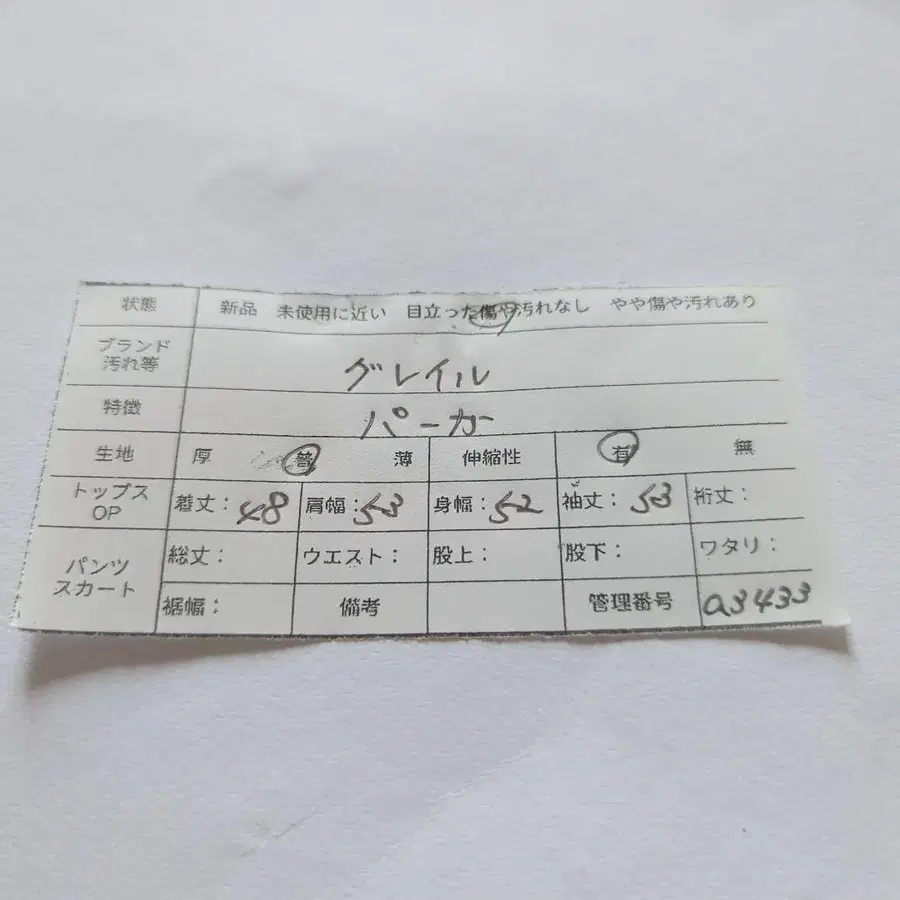 状態 新品 未使用に近い 目立った傷や汚れなし やや傷や汚れあり
ブランド
汚れ等 グレイル
特徴 パーカー
生地 厚 普 薄 伸縮性 有 無
トップス
OP 着丈：48 肩幅：53 身幅：52 袖丈：53 裄丈：
パンツ
スカート 総丈： ウエスト： 股上： 股下： ワタリ：
裾幅： 備考 管理番号 a3433